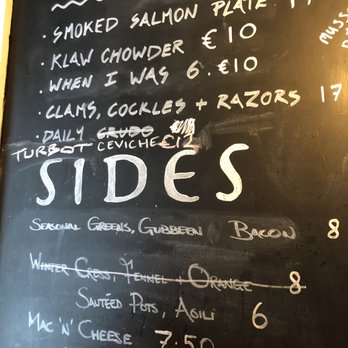 · SMOKED SALMON PLATE
· KLAW CHOWDER €10
· WHEN I WAS 6. €10
· CLAMS, COCKLES + RAZORS 17
· DAILY CRUDO
TURBOT CEVICHE €12
SIDES
SEASONAL GREENS, GUBBEEN BACON 8
WINTER CRESS, FENNEL + ORANGE 8
SAUTÉED POTS, AGILI 6
MAC 'N' CHEESE 7.50